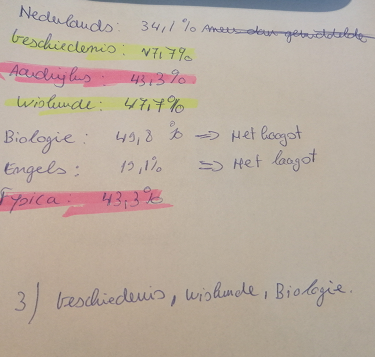 Nederlands: 34,1%
Geschiedenis: 47,7%
Aardrijks: 43,3%
Wiskunde: 47,7%
Biologie: 49,8% => Het laagst
Engels: 19,1% => Het laagst
Fysica: 43,3%
3) Geschiedenis, wiskunde, Biologie.